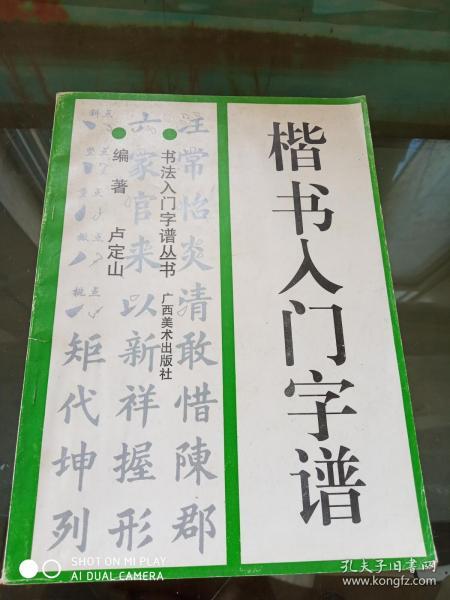 楷书入门字谱
书法入门字谱丛书 广西美术出版社
编著 卢定山
主常怡炎清敢惜陳郡
六家官来以新祥握形
斜点
竖点
点
点
挑点
矩代坤列
SHOT ON MI PLAY
AI DUAL CAMERA
孔夫子旧书网
www.kongfz.com